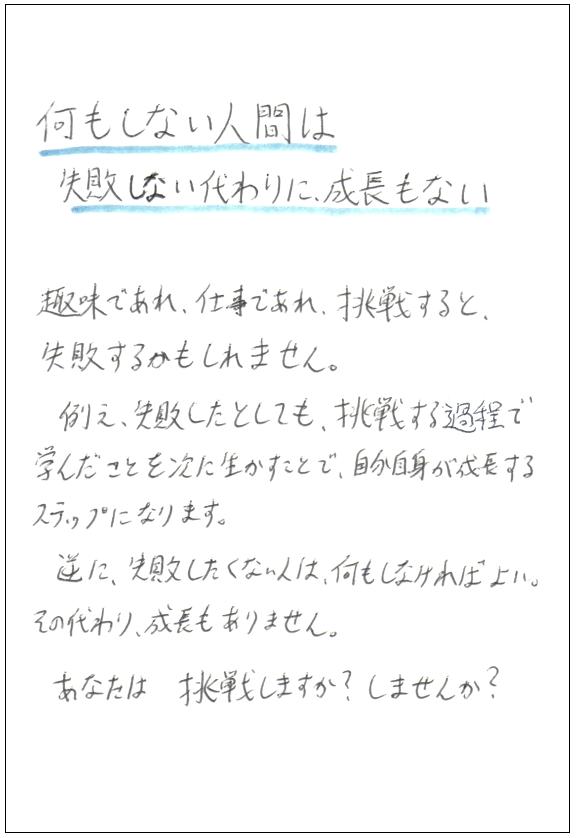 何もしない人間は
失敗しない代わりに、成長もない
趣味であれ、仕事であれ、挑戦すると、
失敗するかもしれません。
例え、失敗したとしても、挑戦する過程で
学んだことを次に生かすことで、自分自身が成長する
ステップになります。
逆に、失敗したくない人は、何もしなければよい。
その代わり、成長もありません。
あなたは 挑戦しますか?しませんか?